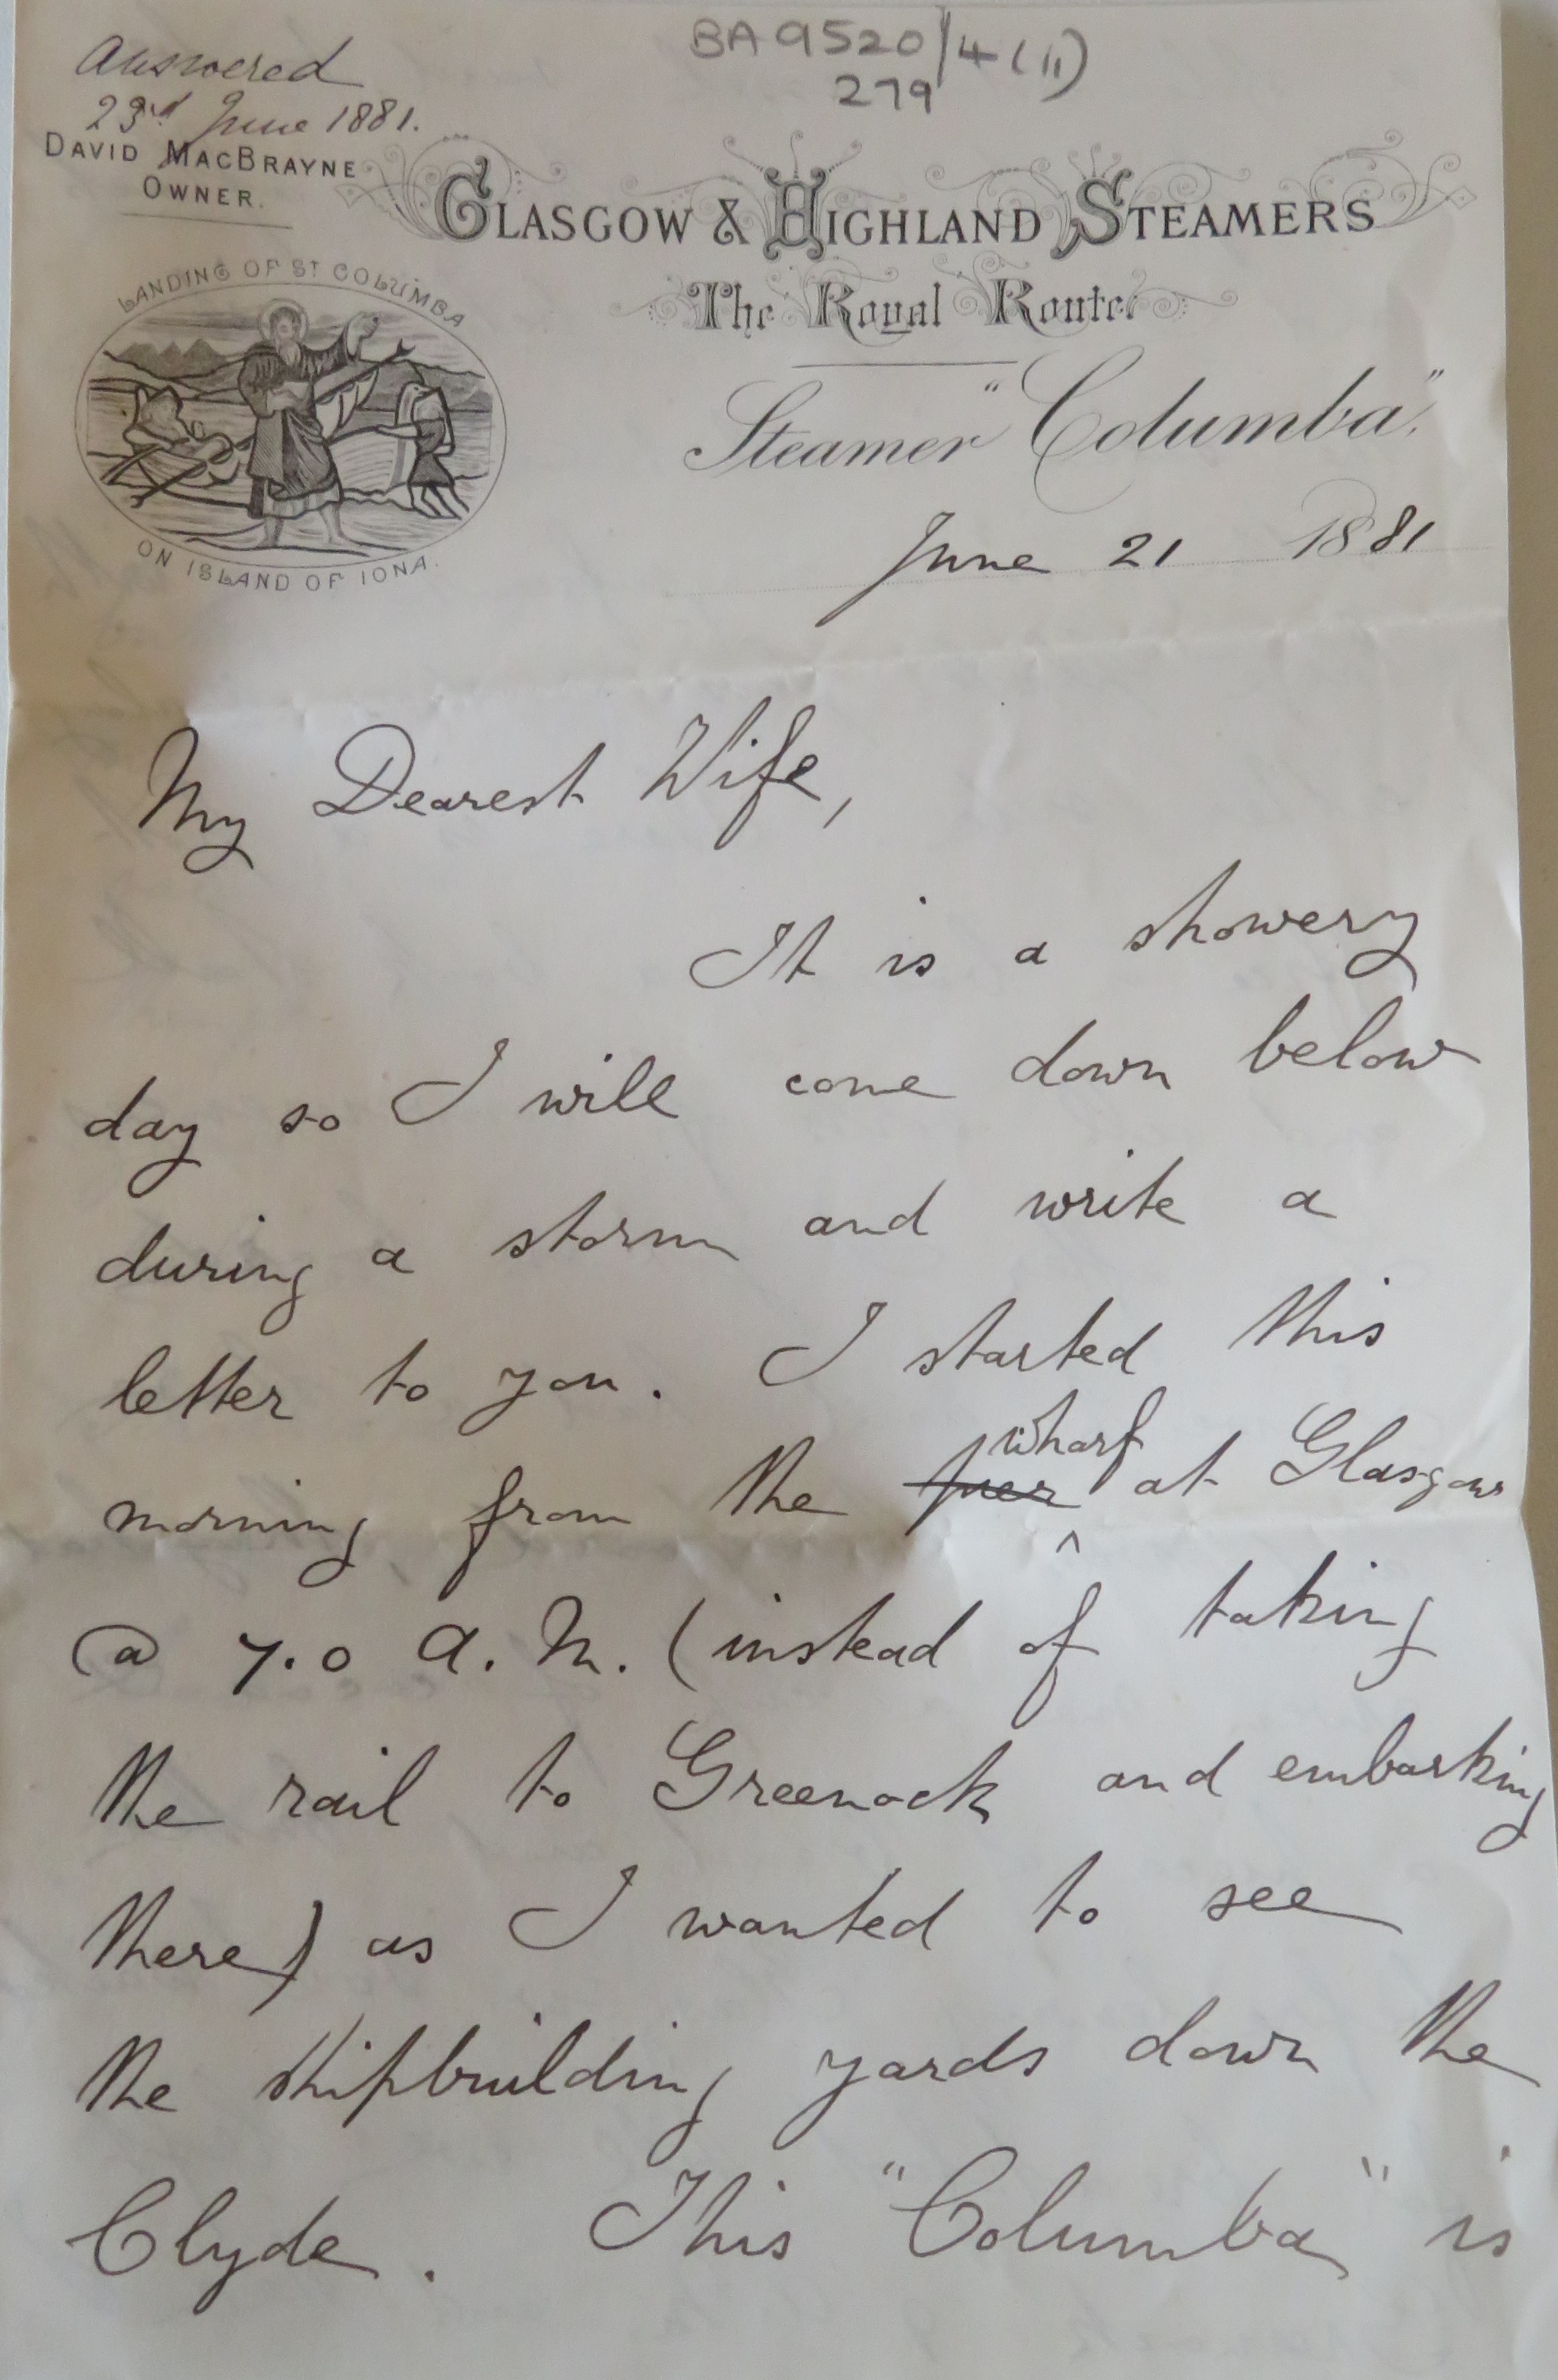 Answered
23rd June 1881.
BA 9520/4(11)
279
DAVID MACBRAYNE
OWNER.
GLASGOW & HIGHLAND STEAMERS
The Royal Route.
LANDING OF ST COLUMBA
ON ISLAND OF IONA.
Steamer "Columba".
June 21 1881
My Dearest Wife,
It is a showery
day so I will come down below
during a storm and write a
letter to you. I started this
wharf
morning from the pier ^ at Glasgow
@ 7.0 A.M. (instead of taking
the rail to Greenock and embarking
there) as I wanted to see
the shipbuilding yards down the
Clyde. This "Columba" is